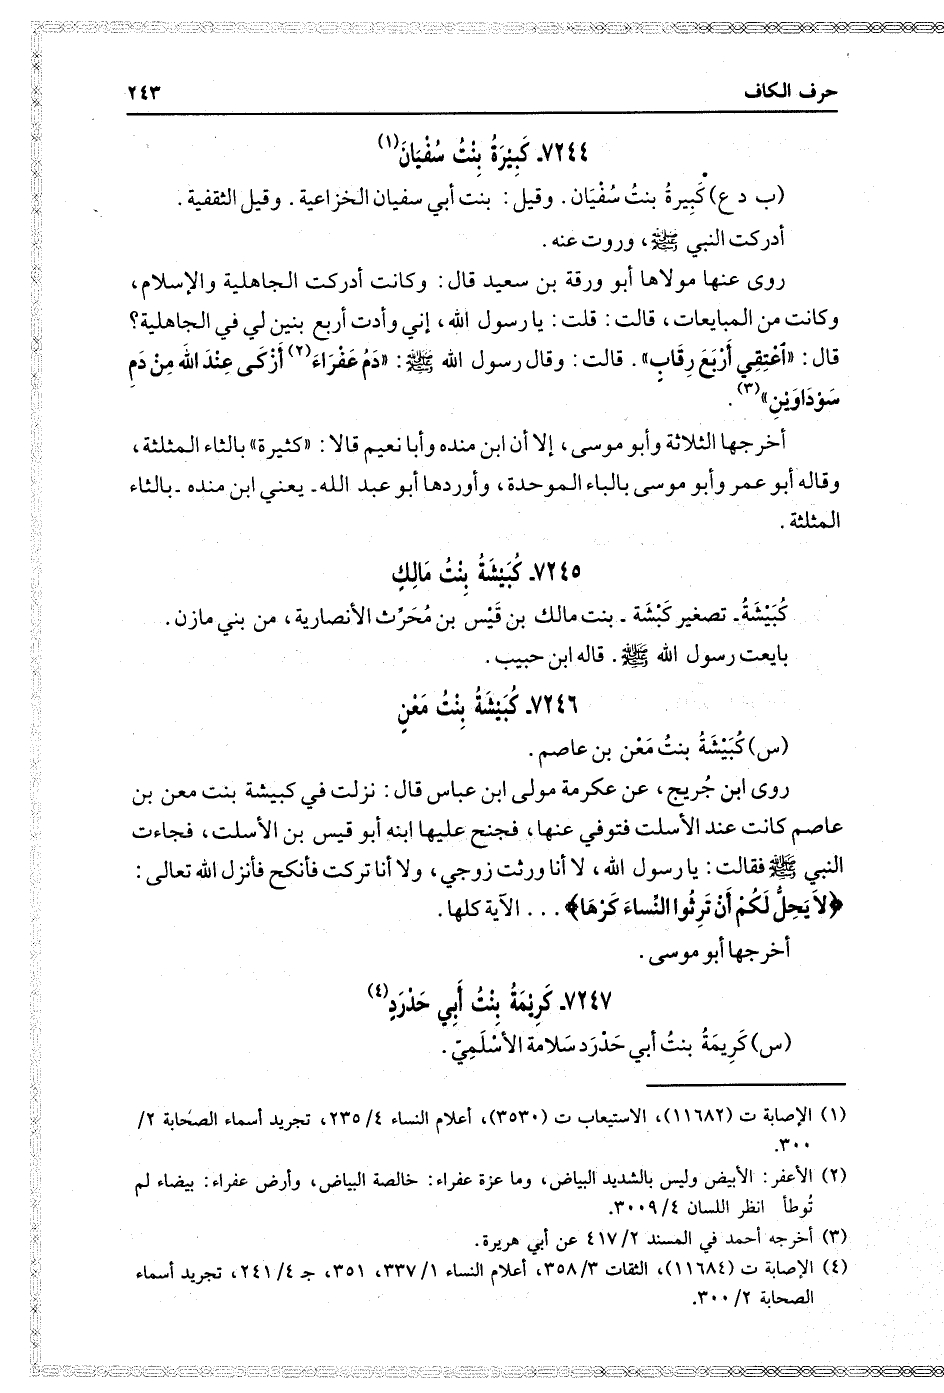 حرف الكاف ٢٤٣
٧٢٤٤ـ كَبِيْرَةُ بِنْتُ سُفْيَانَ(١)
(ب د ع) كَبِيرةُ بنتُ سُفْيَان. وقيل: بنت أبي سفيان الخزاعية. وقيل الثقفية.
أدركت النبي ﷺ، وروت عنه.
روى عنها مولاها أبو ورقة بن سعيد قال: وكانت أدركت الجاهلية والإسلام،
وكانت من المبايعات، قالت: قلت: يا رسول الله، إني وأدت أربع بنين لي في الجاهلية؟
قال: «اعْتِقِي أَرْبَعَ رِقَابٍ». قالت: وقال رسول الله ﷺ: «دَمُ عَفْرَاءَ(٢) أَزْكَى عِنْدَ الله مِنْ دَمِ
سَوْدَاوَيْنِ»(٣).
أخرجها الثلاثة وأبو موسى، إلا أن ابن منده وأبا نعيم قالا: «كثيرة» بالثاء المثلثة،
وقاله أبو عمر وأبو موسى بالباء الموحدة، وأوردها أبو عبد الله ـ يعني ابن منده ـ بالثاء
المثلثة.
٧٢٤٥ـ كُبَيْشَةُ بِنْتُ مَالِكٍ
كُبَيْشَةُ ـ تصغير كَبْشَة ـ بنت مالك بن قَيْس بن مُحَرِّث الأنصارية، من بني مازن.
بايعت رسول الله ﷺ. قاله ابن حبيب.
٧٢٤٦ـ كُبَيْشَةُ بِنْتُ مَعْنٍ
(س) كُبَيْشَةُ بنتُ مَعْن بن عاصم.
روى ابن جُريج، عن عكرمة مولى ابن عباس قال: نزلت في كبيشة بنت معن بن
عاصم كانت عند الأسلت فتوفي عنها، فجنح عليها ابنه أبو قيس بن الأسلت، فجاءت
النبي ﷺ فقالت: يا رسول الله، لا أنا ورثت زوجي، ولا أنا تركت فأنكح فأنزل الله تعالى:
﴿لاَ يَحِلُّ لَكُمْ أَنْ تَرِثُوا النِّساءَ كَرْهَا﴾... الآية كلها.
أخرجها أبو موسى.
٧٢٤٧ـ كَرِيْمَةُ بِنْتُ أَبِي حَدْرَدٍ(٤)
(س) كَرِيمَةُ بنتُ أبي حَدْرَد سَلامة الأسْلَمِيّ.
(١) الإصابة ت (١١٦٨٢)، الاستيعاب ت (٣٥٣٠)، أعلام النساء ٤/ ٢٣٥، تجريد أسماء الصحابة ٢/
٣٠٠.
(٢) الأعفر: الأبيض وليس بالشديد البياض، وما عزة عفراء: خالصة البياض، وأرض عفراء: بيضاء لم
تُوطأ انظر اللسان ٤/ ٣٠٠٩.
(٣) أخرجه أحمد في المسند ٢/ ٤١٧ عن أبي هريرة.
(٤) الإصابة ت (١١٦٨٤)، الثقات ٣/ ٣٥٨، أعلام النساء ١/ ٣٣٧، ٣٥١، جـ ٤/ ٢٤١، تجريد أسماء
الصحابة ٢/ ٣٠٠.